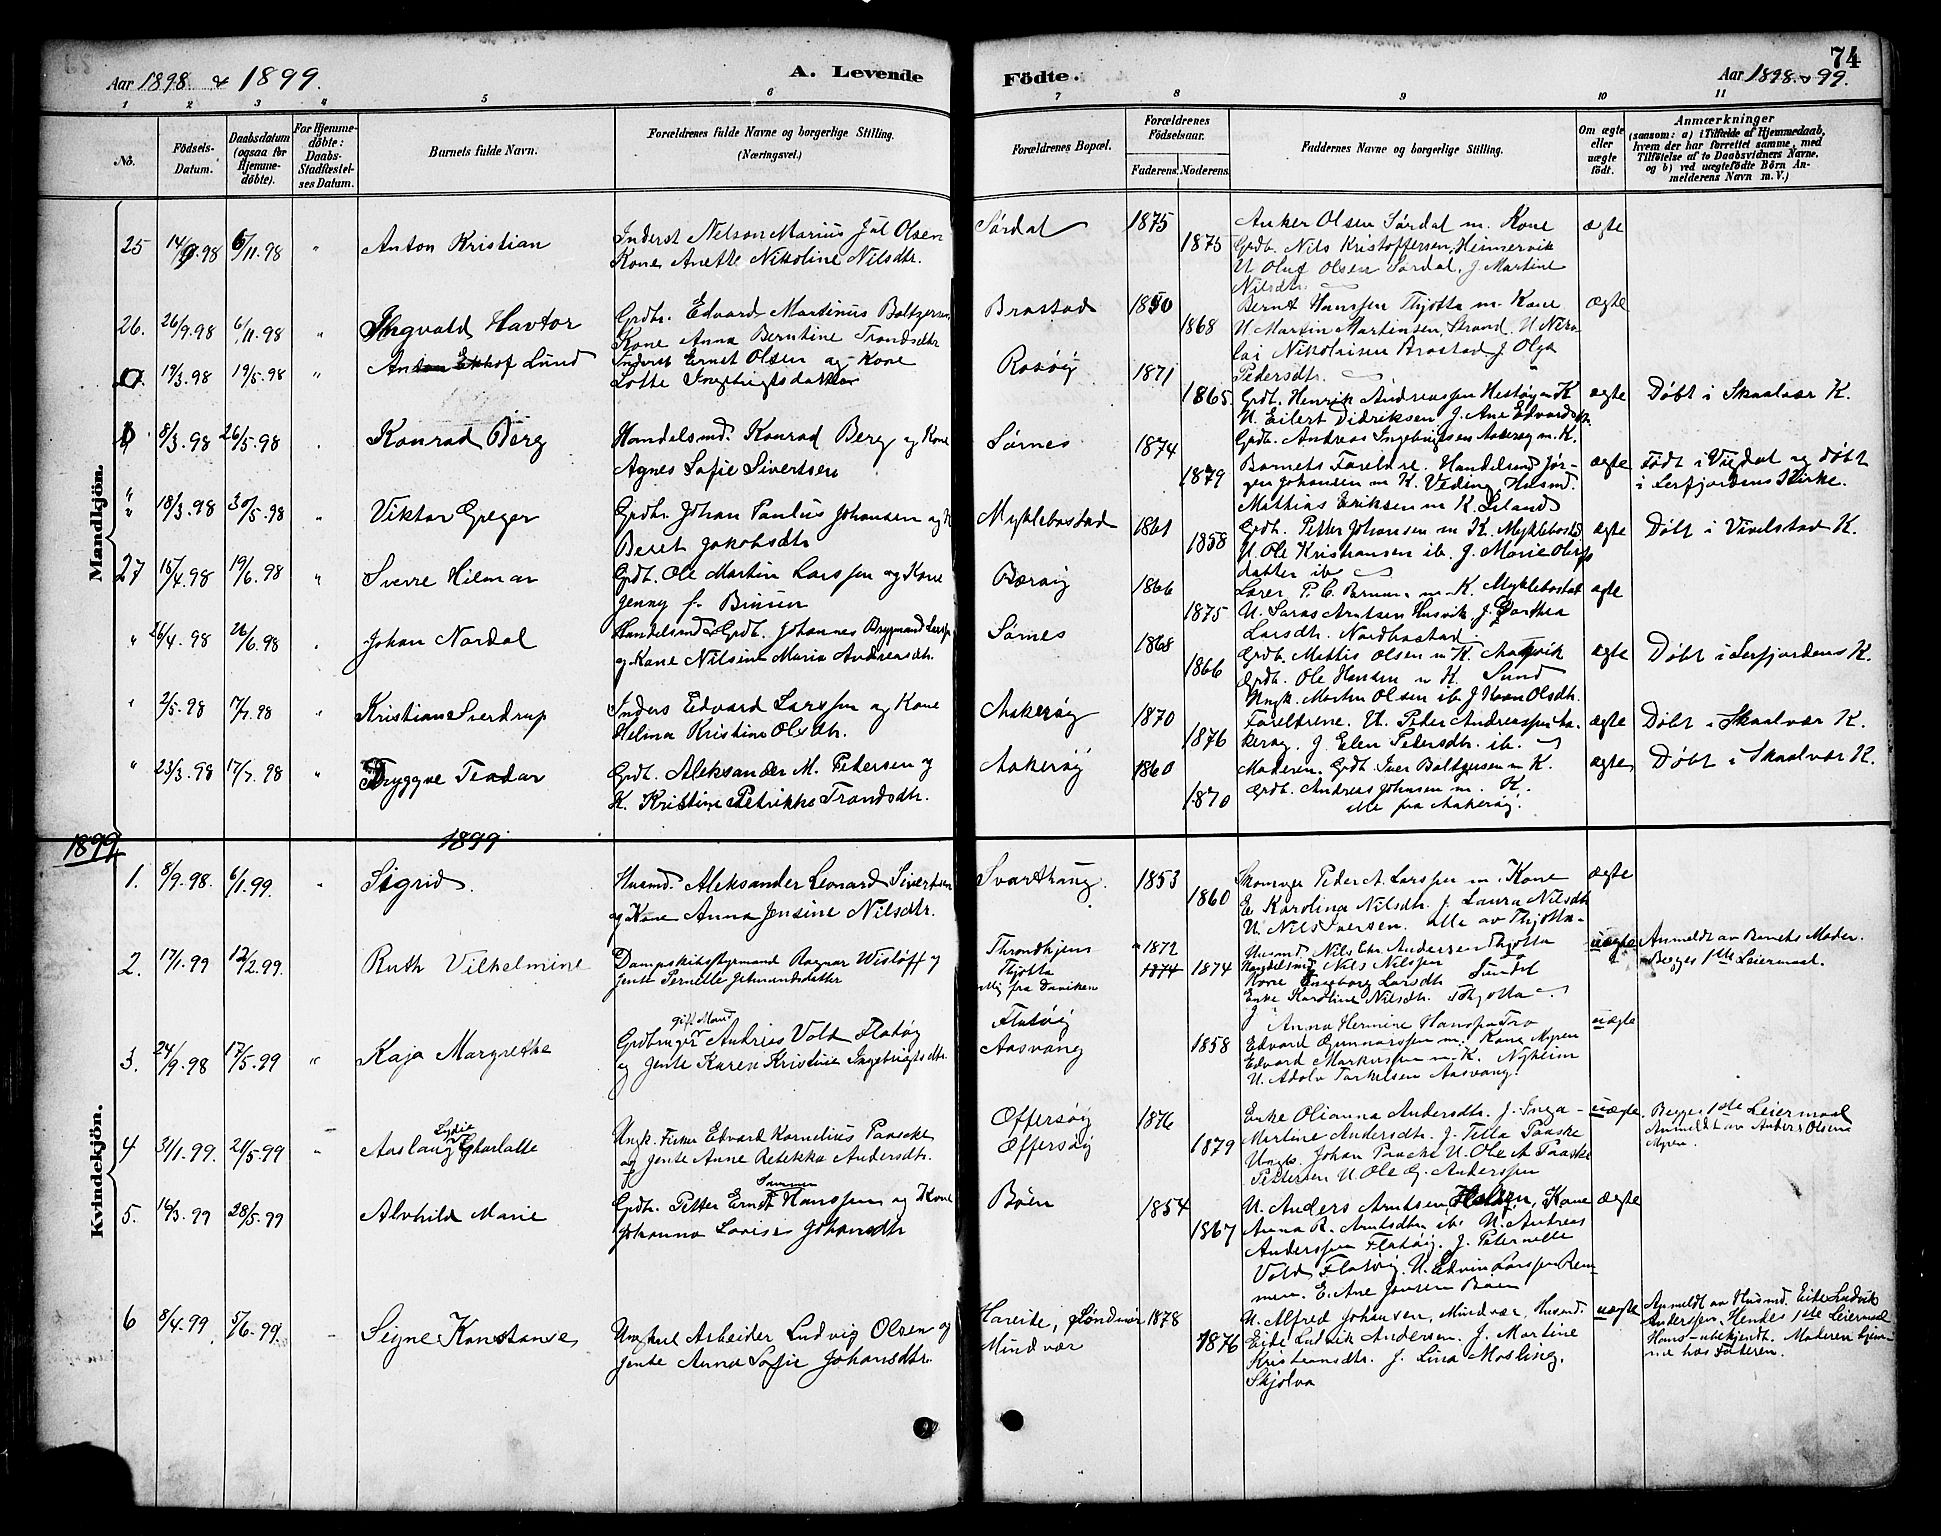 74
Aar 1898 & 1899.
A. Levende
Födte.
Aar 1898 & 99.
1 2 3 4 5 6 7 8 9 10 11
No.
Födsels-
Datum.
Daabsdatum
(ogsaa for
Hjemme-
døbte).
For Hjemme-
døbte:
Daabs-
Stadfæstel-
ses Datum.
Barnets fulde Navn.
Forældrenes fulde Navne og borgerlige Stilling.
(Næringsvei.)
Forældrenes Bopæl.
Forældrenes
Fødselsaar.
Faderens. Moderens.
Faddernes Navne og borgerlige Stilling.
Om ægte
eller
uægte
født.
Anmærkninger
(saasom: a) i Tilfælde af Hjemmedaab,
hvem der har forrettet samme, med
Tilföielse af to Daabsvidners Navne,
og b) ved uægtefödte Börn An-
melderens Navn m. V.)
Mandkjön.
25 14/9.98 6/11.98 " Anton Kristian
Inderst Nelson Marius Jul Olsen
Kone Anette Nikoline Nilsdtr.
Sørdal 1875 1875
Anker Olsen Sørdal m. Kone
Grdb. Nils Kristoffersen, Heimervik
U. Oluf Olsen Sørdal, J. Martine
Nilsdtr.
ægte
26. 26/9.98 6/11.98 " Ingvald Havtor
Grdbr. Edvard Martinus Baltzersen
Kone Anna Berntine Trondsdtr
Brastad 1850 1868
Bernt Hanssen Thjøtta m. Kone
U. Martin Martinsen, Strand, U. Niko-
lai Nikolaisen Brastad J. Olga
Pedersdtr.
ægte
0. 19/3.98 19/5.98 " Anton Ekhof Lund
Inderst Ernst Olsen og Kone
Lotte Ingebrigtsdatter
Rosøy 1871 1865
Grdb. Henrik Andreassen Hestøy m K
U. Eilert Didriksen, J. Ane Edvardsdtr.
Grdb. Andreas Ingebrigtsen Aakerøy m. K.
ægte Døbt i Skaalvær K.
8/3.98 26/5.98 Konrad Berg
Handelsmd. Konrad Berg og Kone
Agnes Sofie Sivertsen
Sørnes 1874 1879
Barnets Foreldre. Handelsmd Jør-
gen Johansen m K. Veding, Husmd.
Mathias Eriksen m K. Leland
ægte Født i Vigdal og døbt
i Lerfjordens Kirke.
" 18/3.98 30/5.98 " Viktor Greger
Grdbr. Johan Paulus Johansen og K
Beret Jakobsdtr
Myklebostad 1861 1858
Grdb. Petter Johansen m K. Myklebostd
U. Ole Kristiansen ib. J. Marie Olufs
datter ib
ægte Døbt i Vivelstad K.
27 15/4.98 19/6.98 " Sverre Hilmar
Grdb. Ole Martin Larssen og Kone
Jenny f. Brinsen
Bærøy 1866 1875
Lærer P. C. m. K. Myklebostad
U. Laras Arntsen Husvik J. Dorthea
Larsdtr. Nordbostad.
ægte
" 26/4.98 26/6.98 Johan Nordal
Handelsmd & Grdb. Johannes Brygmand Larssen
og Kone Nilsine Maria Andreasdtr.
Sørnes 1868 1866
Grdb. Mattis Olsen m K.
Grdb. Ole Hansen m K. Sund
Ungk. Morten Olsen ib J. Olsdtr.
ægte Døbt i Lerfjordens K.
" 2/5.98 17/7.98 " Kristian Sverdrup
Inders Edvard Larssen og Kone
Helma Kristine Olsdtr.
Aakerøy 1870 1876
Foreldrene. U. Peder Andreassen Aa-
kerøy. J. Elen Pedersdtr. ib.
ægte Døbt i Skaalvær K.
" 23/3.98 17/7.98 " Tryggve Teodor
Grdb. Aleksander M. Pedersen og
K. Kristine Petrikke Trondsdtr.
Aakerøy 1860 1870
Moderen. Grdb. Iver Baltzersen m K.
Grdb. Andreas Johnsen m. K.
alle fra Aakerøy.
ægte Døbt i Skaalvær K.
1899 1899
Kvindekjön.
1. 8/9.98. 6/1.99. " Sigrid.
Husmd. Aleksander Leonard Sivertsen
og Kone Anna Jensine Nilsdtr.
Svarthaug. 1853 1860
Skomager Peder A. Larssen m. Kone
E. Karolina Nilsdtr. J. Laura Nilsdtr
U. Nils Iversen. alle av Thjøtta.
ægte
2. 17/1.99 12/2.99. Ruth Vilhelmine
Dampskibsstyrmand Ragnar Wisløff og
Jente Pernelle Jetmundsdatter
Throndhjem
Thjøtta
1872 1874 1874
Husmd. Nils Chr. Andersen Thjøtta
Handelsmd Nils Nilssen do
Kone Ingeborg Larsdtr Sundet
Enke Karoline Nilsdtr. Thjøtta
uægte Anmeldt av Barnets Moder.
Begges 1ste Leiermaal.
3. 24/9.98 17/5.99 " Kaja Margrethe
gift Mand
Grdbruger Andreas Vold Flatøy
og Jente Karen Kristine Ingebrigtsdtr.
Flatøy
Aasvang 1858
J Anna Hermine Hanssen Tro
Edvard Gunnarssen m. Kone Myren
Edvard Markussen m. K. Nyheim
U. Adolv Torkelsen Aasvang.
uægte
4 31/1.99. 21/5.99 " Aaslaug Lydie Charlotte
Ungk. Fisker Edvard Kornelius Paaske
og Jente Anne Rebekka Andersdtr.
Offersøy
Offersøy
1876 1879
Enke Olianna Andersdtr. J. Inga
Martine Andersdtr. J. Tilla Paaske
Ungk. Johan Paaske U. Ole A Paaske
Pettersen U. Ole G. Anderssen
uægte. Begges 1ste Leiermaal
Anmeldt av Anders Olsen
Myren.
5. 16/3.99 28/5.99 Alvhild Marie
Grdbr. Petter Ernst Hanssen og Kone
Johanna Lovise Johansdtr
Bøen 1854 1867
U. Anders Arntsen, Kone
Anna R. Arntsdtr ib. U. Andreas
Anderssen Flatøy. J. Peternelle
Vold Flatøy. U. Edvin Larssen Rem-
men. E. Ane Jonsen Bøen
ægte
6 8/4.99 5/6.99. Signe Konstanse
Ungkarl Arbeider Ludvig Olsen og
Jente Anna Sofie Johansdtr.
Mindvær
1878 1876
U. Alfred Johansen, Mindvær, Husmd.
Eide Ludvik Andersen. J. Martine
Kristiansdtr. J. Lina Mosling.
Skjolva
uægte Anmeldt av Husmd. Eide Ludvik
Anderssen. Hendes 1ste Leiermaal
Hans ubekjendt. Moderen hjem-
me hos Faderen.